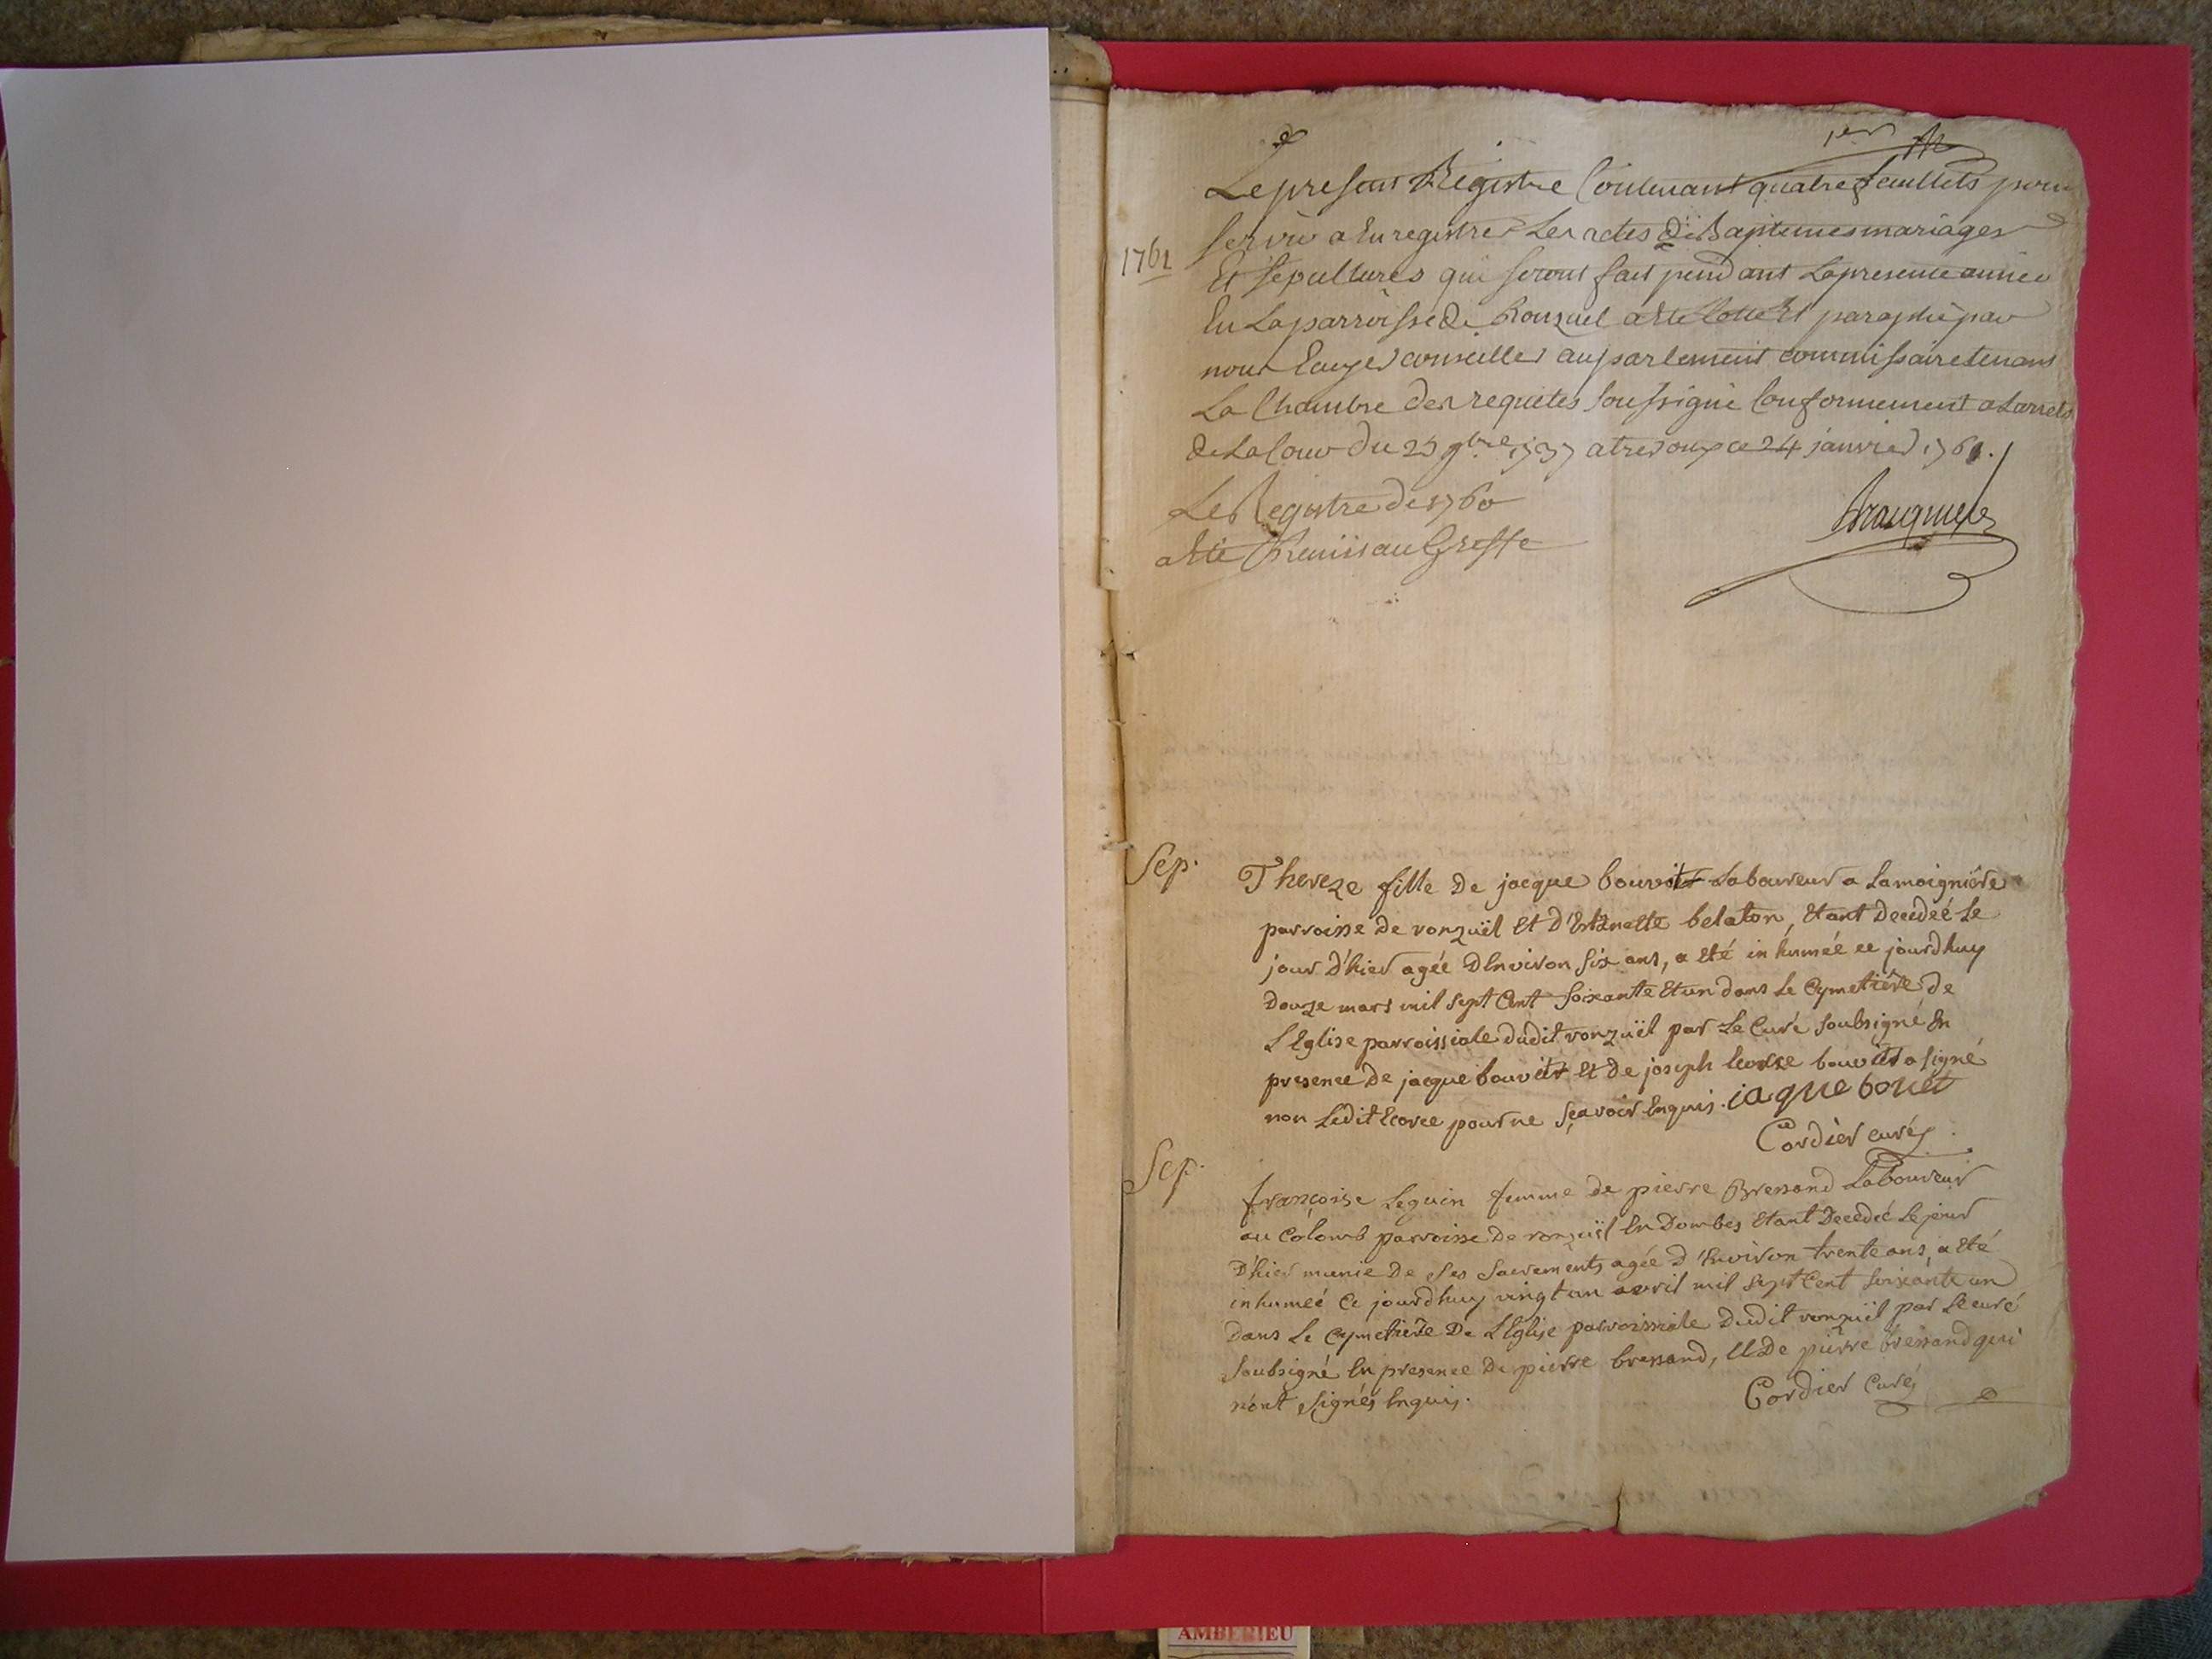 1er
Le present Registre Contenant quatre feuillets pour
servir a Enregistrer Les actes de Baptemes mariages
1761
Et sepultures qui seront fait pendant La presente année
En La parroisse de Ronzuel a Eté Cotté Et paraphé par
nous conseiller au parlement commissaire tenant
La Chambre des requetes soussigné Conformement a Larrets
de La Cour du 25 9bre 1737 a trevoux ce 24 janvier 1761.
Le Registre de 1760
a Eté Remis au Greffe
Sep.
Thereze fille de jacque bouvet Laboureur a Lamoigniére
parroisse de ronzuël Et d'Estiennette belaton, Etant Decedeé Le
jour d'hier agée d'Environ six ans, a Eté inhumeé ce jourdhuy
Douze mars mil sept Cent soixante Et un dans Le Cymetiére de
L'Eglise parroissiale dudit ronzuël par Le Curé soubsigné En
presence de jacque bouvet Et de joseph Ecorce bouvet a signé
non Ledit Ecorce pour ne sçavoir Enquis. iaque bouet
Cordier curé
Sep.
françoise Leguin femme de pierre Bressand Laboureur
au Colomb parroisse de ronzuël En Dombes Etant Decedeé Le jour
D'hier munie De ses sacrements agée d'Environ trente ans, a Eté
inhumeé Ce jourdhuy vingt un avril mil sept Cent soixante un
Dans Le Cymetiére De L'Eglise parroissiale Dudit ronzuël par Le curé
soubsigné En presence De pierre bressand, Et De pierre bressand qui
n'ont signés Enquis.
Cordier Curé
AMBERIEU